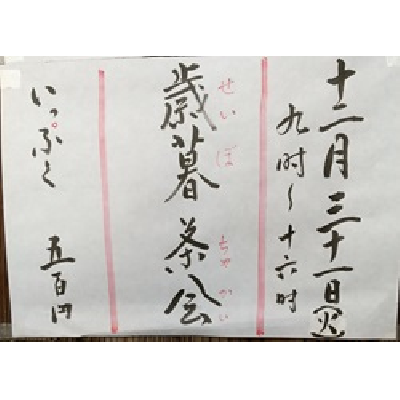 十二月三十一日(火)
九時〜十六時
せいぼ ちゃかい
歳暮茶会
いっぷく 五百円